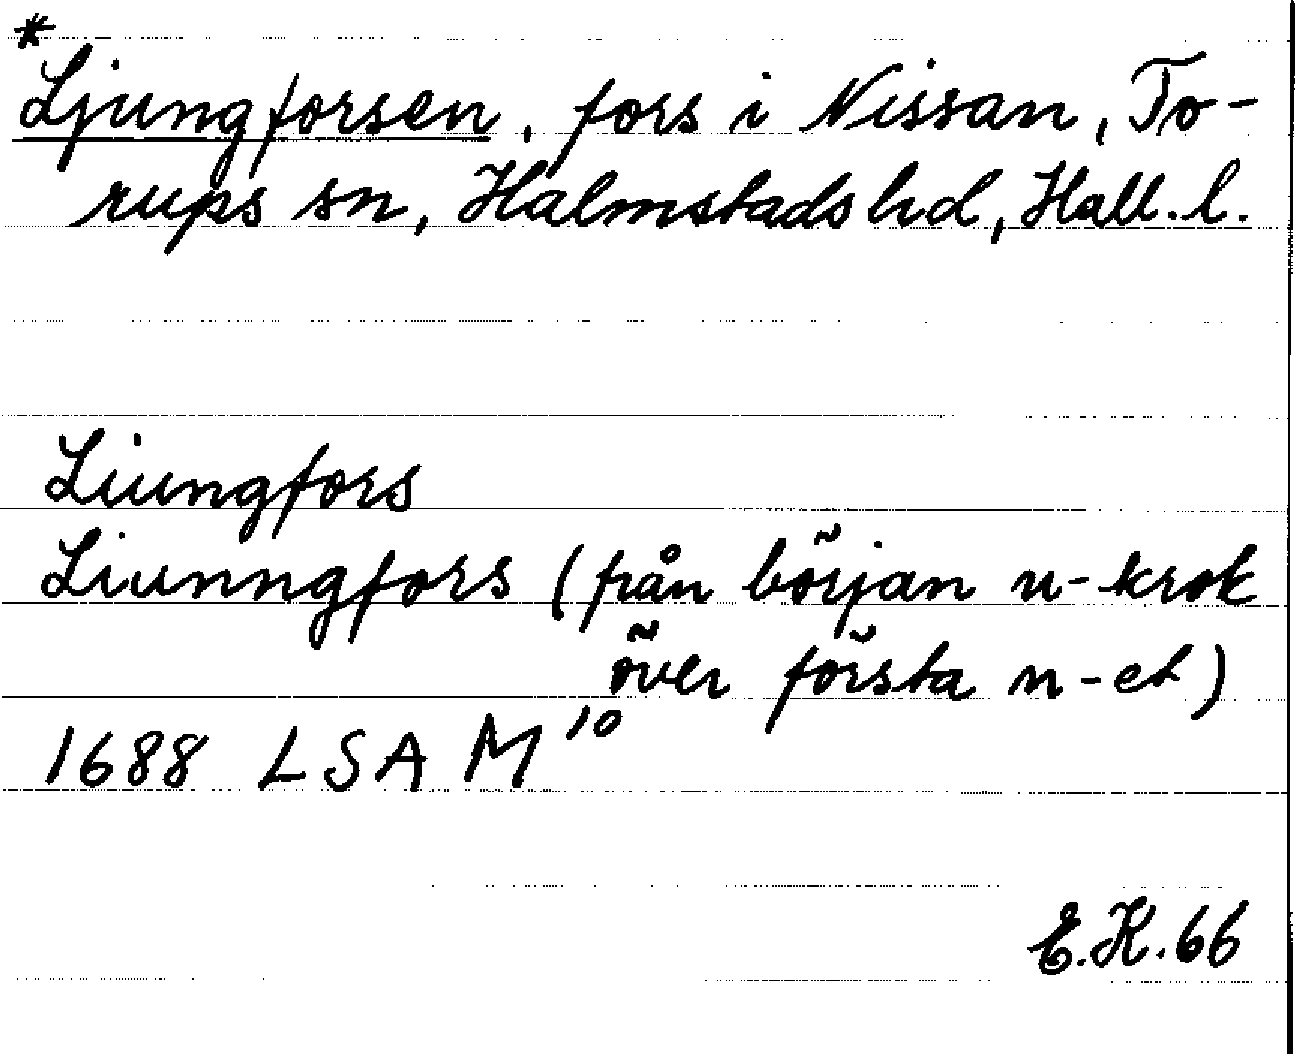 *
Ljungforsen, fors i Nissan, To-
rups sn, Halmstads hd, Hall. l.
Liungfors
Liunngfors (från början u-krok
över första n-et)
1688 LSA M¹⁰
E.K. 66